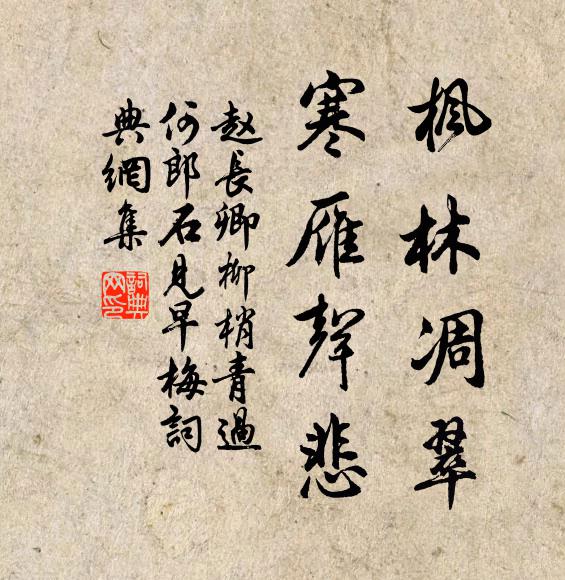 枫林凋翠
寒雁聲悲
赵長卿柳梢青過
何郎石見早梅詞
典網集
詞典網印